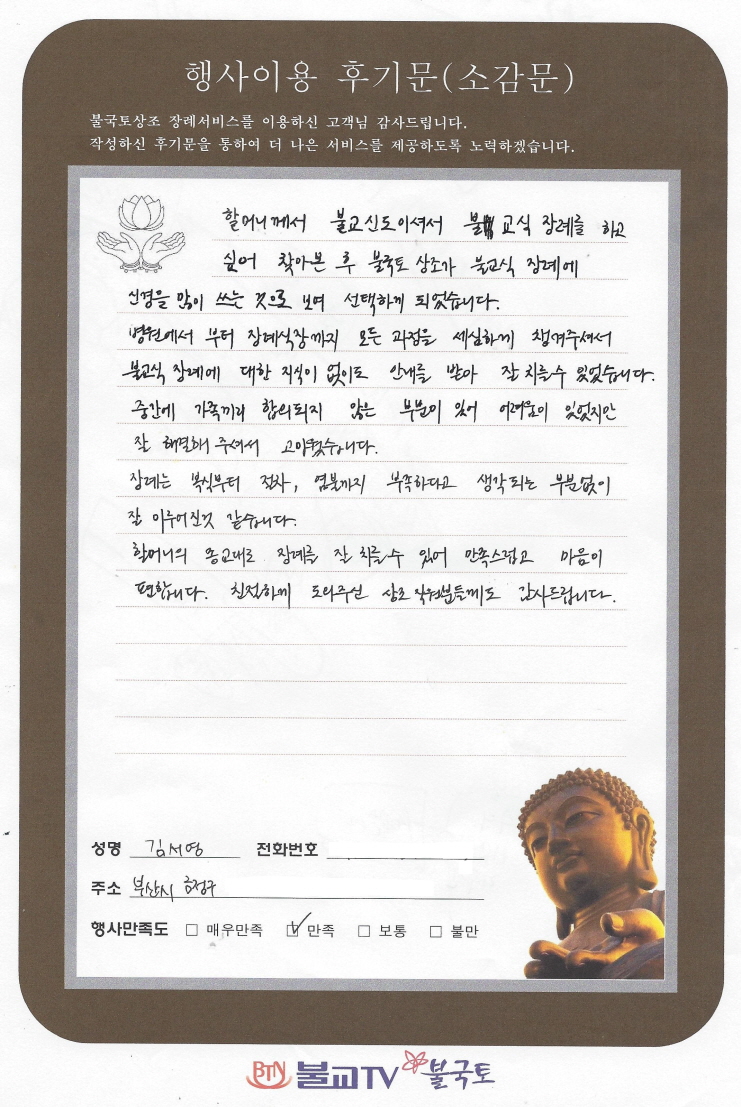 행사이용 후기문(소감문)
불국토상조 장례서비스를 이용하신 고객님 감사드립니다.
작성하신 후기문을 통하여 더 나은 서비스를 제공하도록 노력하겠습니다.
할머니께서 불교신도이셔서 불교식 장례를 하고
싶어 찾아본 후 불국토 상조가 불교식 장례에
신경을 많이 쓰는 것으로 보여 선택하게 되었습니다.
병원에서 부터 장례식장까지 모든 과정을 세심하게 챙겨주셔서
불교식 장례에 대한 지식이 없이도 안내를 받아 잘 치를수 있었습니다.
중간에 가족끼리 합의되지 않은 부분이 있어 어려움이 있었지만
잘 해결해 주셔서 고마웠습니다.
장례는 복식부터 절차, 염불까지 부족하다고 생각되는 부분없이
잘 이루어진것 같습니다.
할머니의 종교대로 장례를 잘 치를수 있어 만족스럽고 마음이
편합니다. 친절하게 도와주신 상조 직원분들께도 감사드립니다.
성명 김서영 전화번호
주소 부산시 금정구
행사만족도 □ 매우만족 ☑ 만족 □ 보통 □ 불만
BTN 불교TV 불국토